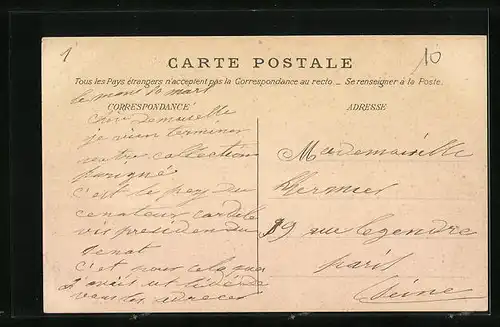 1
10
CARTE POSTALE
Tous les Pays étrangers n'acceptent pas la Correspondance au recto. _ Se renseigner à la Poste.
le mans 10 mars
CORRESPONDANCE
Chère Demoiselle
je vien terminer
votre collection
parigné
c'est le pey du
cenateur
vis presiden du
senat
c'est pour cela que
j'avais
vous les adrecer
ADRESSE
Mademoiselle
Lhermier
89 rue legendre
paris
Seine